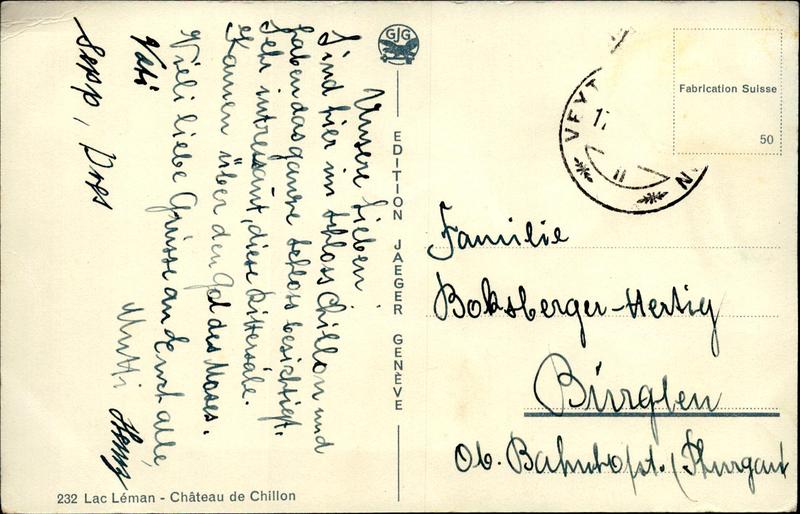 Unsere Lieben
Sind hier im Schloss Chillon und
haben das ganze Schloss besichtigt.
Sehr intressant, diese Rittersäle.
Kamen über den Col des Mosses.
Vieli liebe Grüsse an Euch alle
Vati Mutti Henry
Sepp, Dres
GJG
EDITION JAEGER GENÈVE
232 Lac Léman - Château de Chillon
VEYT
Fabrication Suisse
50
Familie
Boksberger-Hertig
Bürglen
Ob. Bahnhofstr. / Thurgau